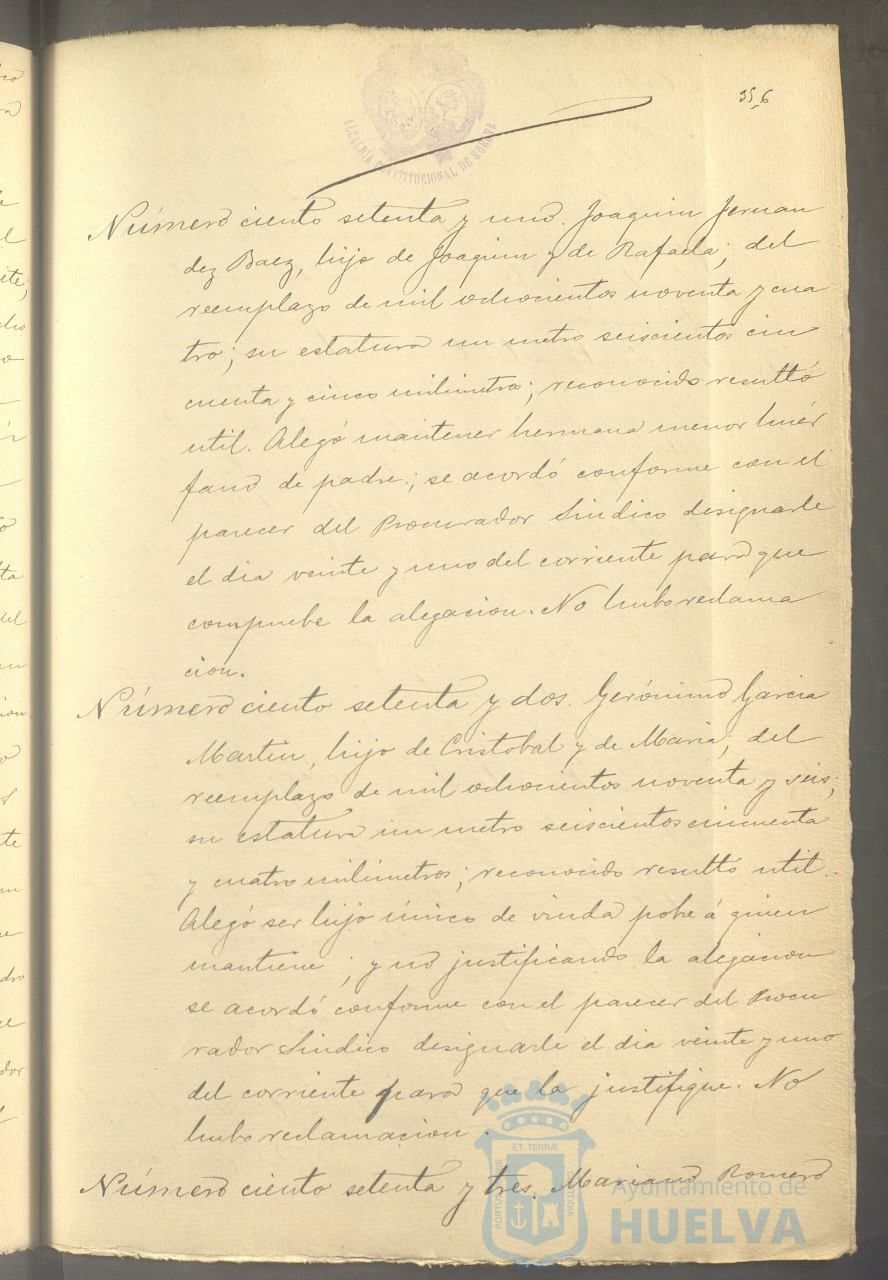 356
ALCALDÍA CONSTITUCIONAL DE HUELVA
Número ciento setenta y uno. Joaquin Fernan
dez Baez, hijo de Joaquin y de Rafaela; del
reemplazo de mil ochocientos noventa y cua
tro; su estatura un metro seiscientos cin
cuenta y cinco milimetros; reconocido resultó
util. Alegó mantener hermano menor huér
fano de padre; se acordó conforme con el
parecer del Procurador Sindico designarle
el dia veinte y uno del corriente para que
compruebe la alegacion. No hubo reclama
cion.
Número ciento setenta y dos. Gerónimo Garcia
Martin, hijo de Cristobal y de Maria; del
reemplazo de mil ochocientos noventa y seis;
su estatura un metro seiscientos cincuenta
y cuatro milimetros; reconocido resultó util.
Alegó ser hijo único de viuda pobre á quien
mantiene; y no justificando la alegacion
se acordó conforme con el parecer del Procu
rador Sindico designarle el dia veinte y uno
del corriente para que la justifique. No
hubo reclamacion.
Número ciento setenta y tres. Mariano Romero
PORTUS MARIS ET TERRÆ CUSTODIA
Ayuntamiento de
HUELVA